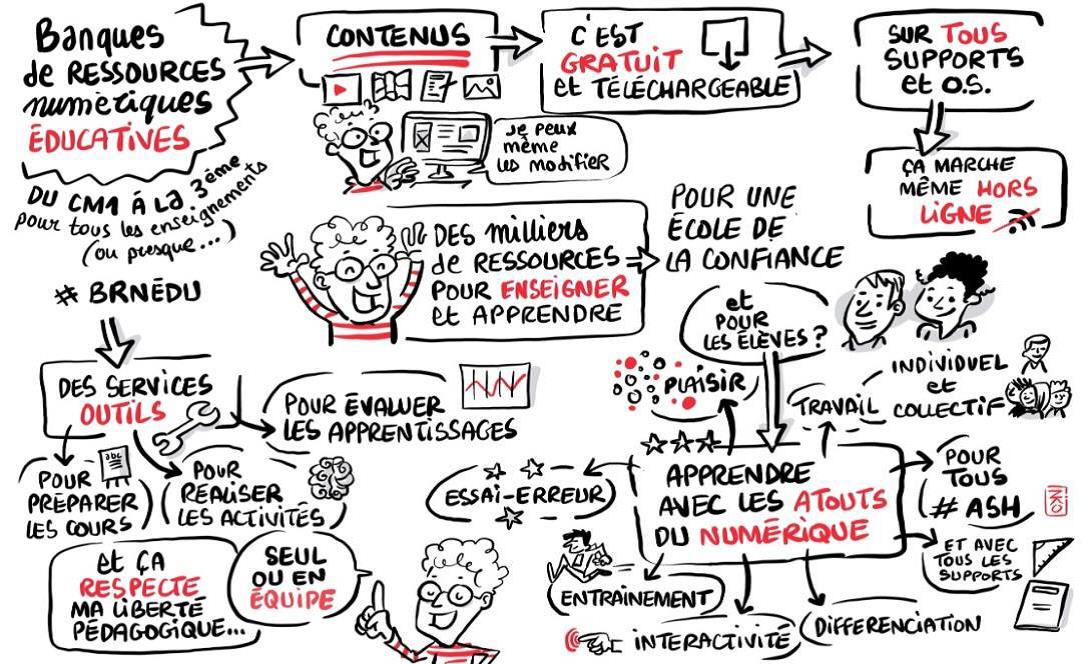 Banques
de RESSOURCES
numériques
ÉDUCATIVES
DU CM1 À LA 3ème
pour tous les enseignements
(ou presque...)
# BRNÉDU
CONTENUS
je peux
même
les modifier
C'EST
GRATUIT
et TÉLÉCHARGEABLE
SUR TOUS
SUPPORTS
et O.S.
ÇA MARCHE
MÊME HORS
LIGNE
DES milliers
de RESSOURCES
POUR ENSEIGNER
et APPRENDRE
POUR UNE
ÉCOLE DE
LA CONFIANCE
et
POUR
LES ÉLÈVES ?
DES SERVICES
OUTILS
POUR ÉVALUER
LES APPRENTISSAGES
abc
POUR
PRÉPARER
LES COURS
POUR
RÉALISER
LES ACTIVITÉS
et ÇA
RESPECTE
MA LIBERTÉ
PÉDAGOGIQUE...
SEUL
OU EN
ÉQUIPE
PLAISIR
TRAVAIL
INDIVIDUEL
et
COLLECTIF
ESSAI-ERREUR
APPRENDRE
AVEC LES ATOUTS
DU NUMÉRIQUE
POUR
TOUS
# ASH
ET AVEC
TOUS LES
SUPPORTS
ENTRAINEMENT
INTERACTIVITÉ
DIFFERENCIATION